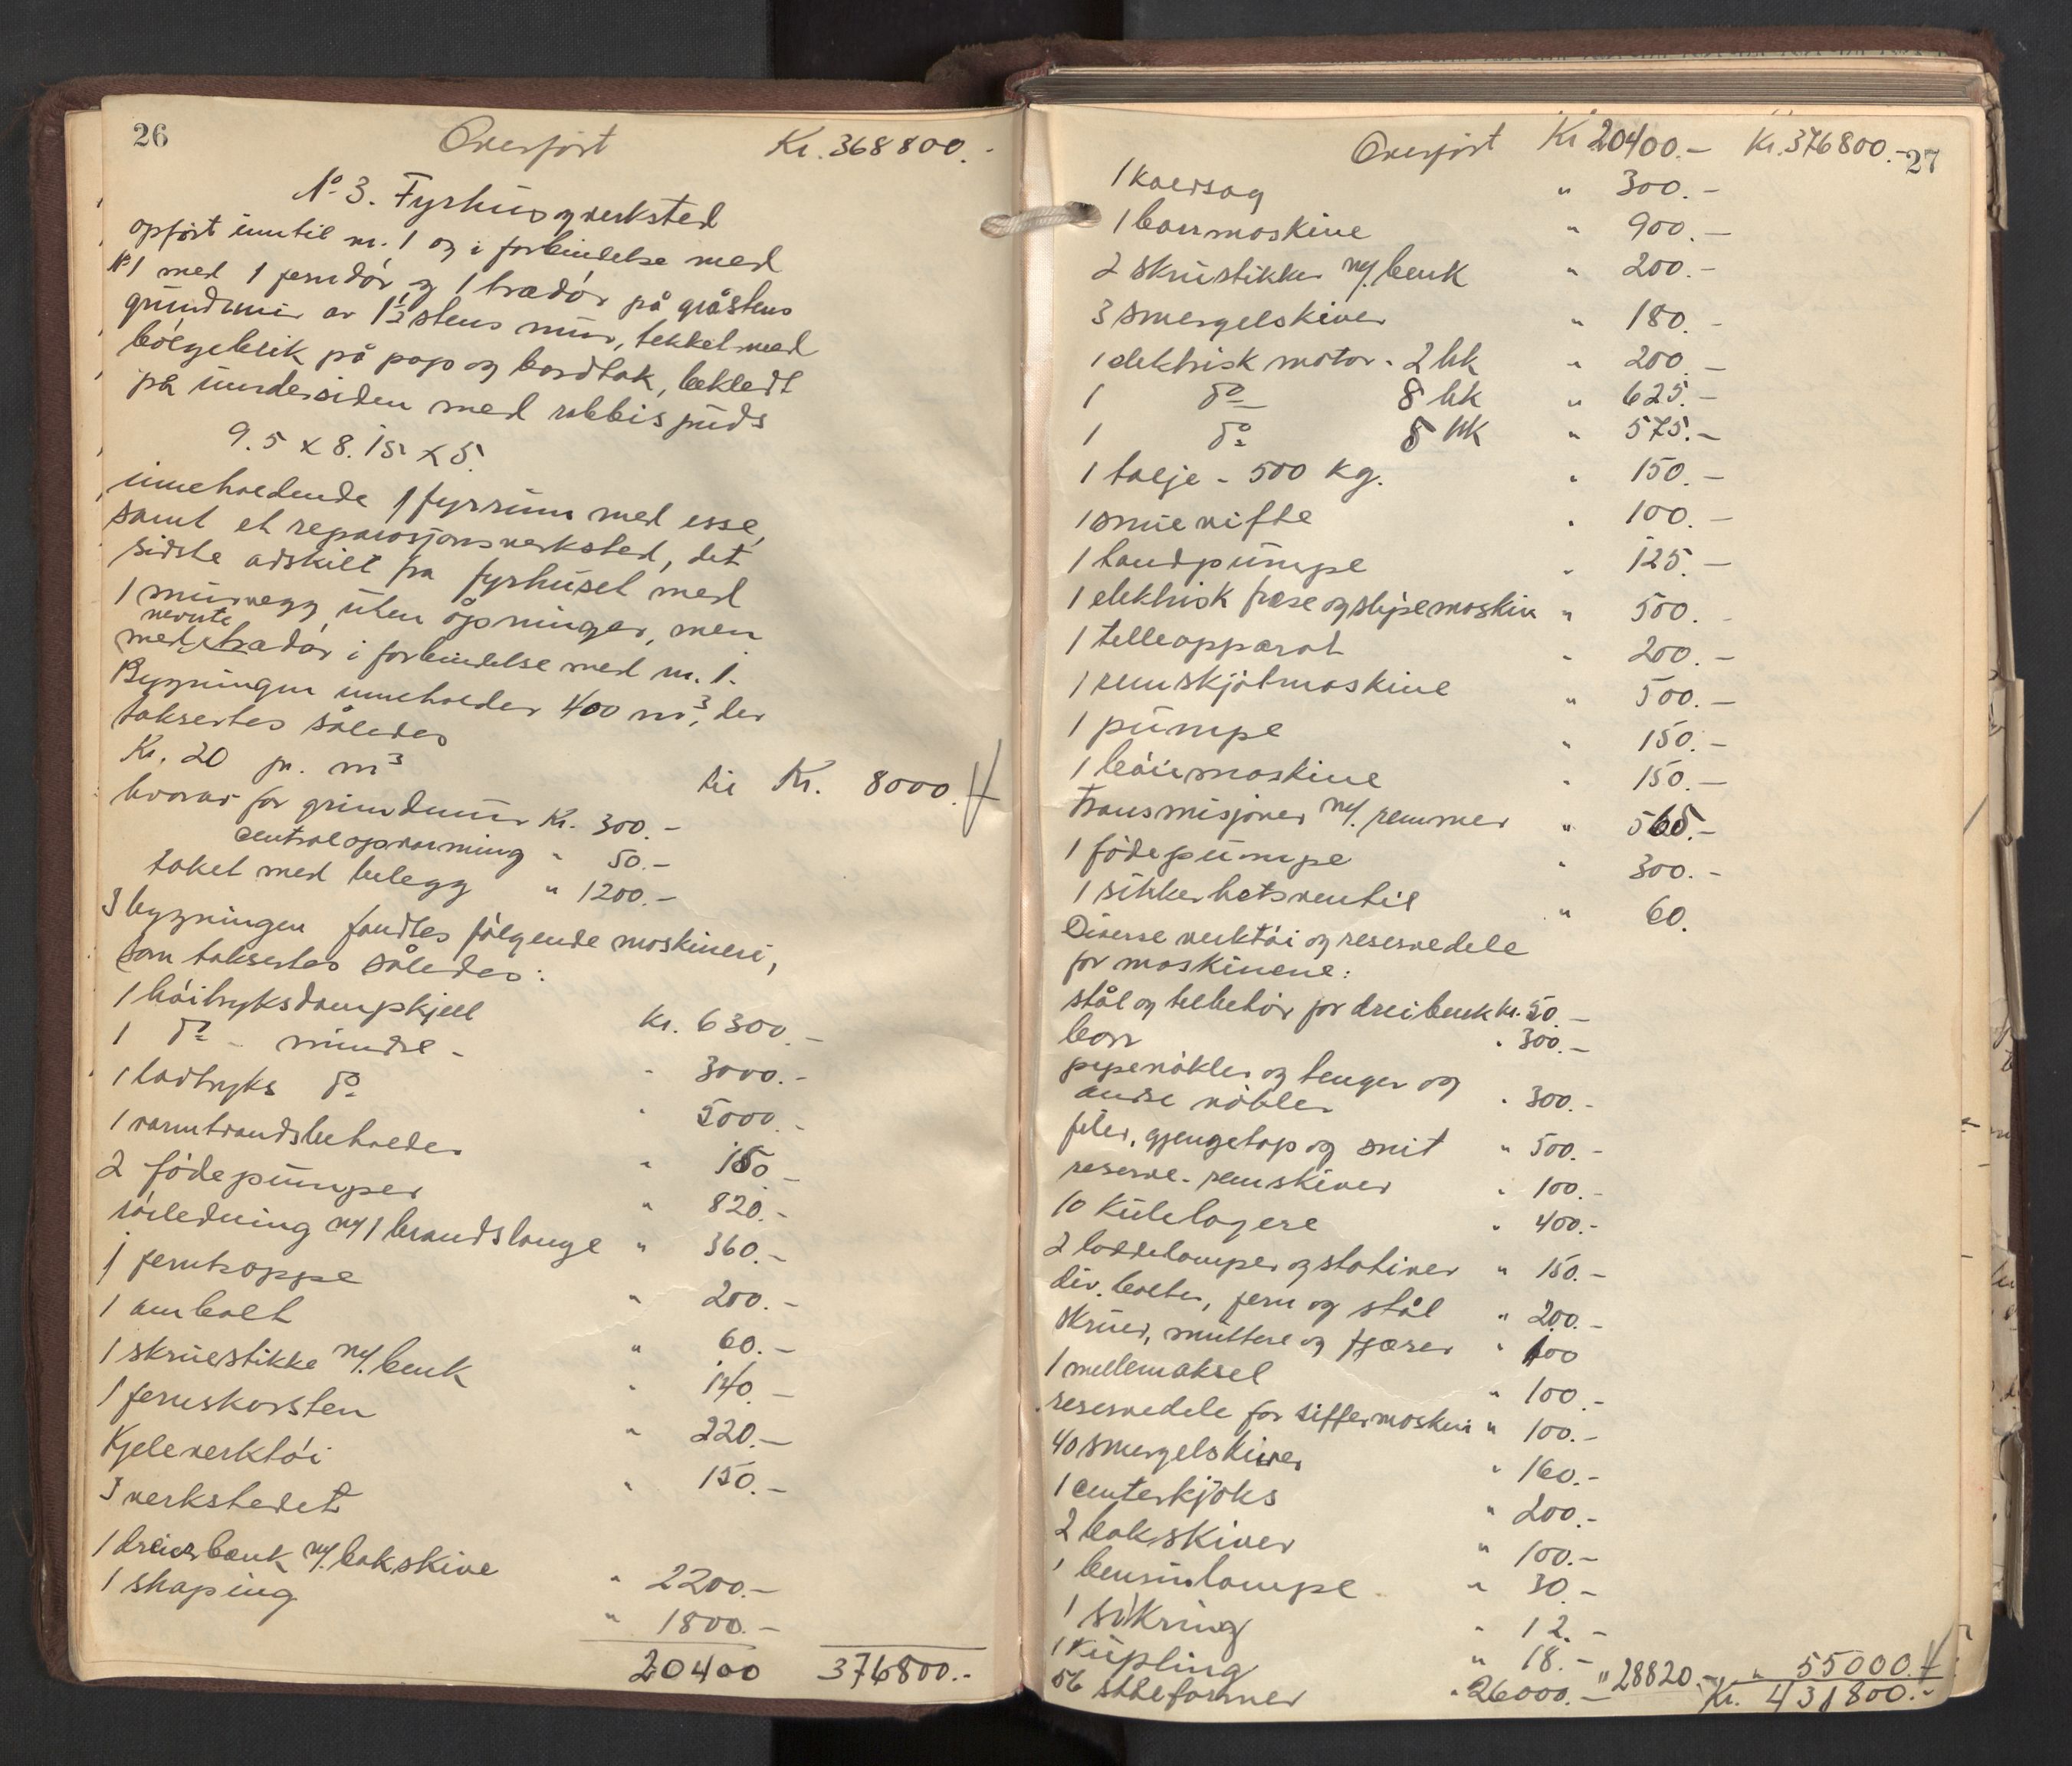 26
Overført Kr. 368800.-
No 3. Fyrhus og verksted
opført inntil nr. 1 og i forbindelse med
No 1 med 1 jerndør og 1 trædør på gråstens
grundmur av 1½ stens mur, tekket med
bølgeblik på pap og bordtak, bekledt
på undersiden med rabbispuds
9.5 x 8.15 x 5.
inneholdende 1 fyrrum med esse,
samt et reparasjonsverksted, det
sidste adskilt fra fyrhuset med
1 murvegg uten åpninger, men
med nevnte trædør i forbindelse med nr. 1.
Bygningen inneholder 400 m³, der
taksertes således
Kr. 20 pr. m³ til Kr. 8000.-
hvorav for grundmur Kr. 300.-
centralopvarming " 50.-
taket med belegg " 1200.-
I bygningen fandtes følgende maskineri,
som taksertes således:
1 høitryksdampkjell Kr. 6300.-
1 do - mindre - " 3000.-
1 lavtryks do " 5000.-
1 varmtvandsbeholder " 150.-
2 fødepumper " 820.-
rørledning m/1 brandslange " 360.-
1 jerntrappe " 200.-
1 ambolt " 60.-
1 skruestikke m/. benk " 140.-
1 jernskorsten " 220.-
Kjeleverktøi " 150.-
I verkstedet
1 dreierbænk m/. bakskive " 2200.-
1 shaping " 1800.-
20400 376800.-
27
Overført Kr 20400.- Kr. 376800.-
1 kaldsag " 300.-
1 bormaskine " 900.-
2 skrustikker m/. benk " 200.-
3 smergelskiver " 180.-
1 elektrisk motor - 2 hk " 200.-
1 do 8 hk " 625.-
1 do 5 hk " 575.-
1 talje - 500 kg. " 150.-
1 smievifte " 100.-
1 handpumpe " 125.-
1 elektrisk fræse og slipemaskin " 500.-
1 telleapparat " 200.-
1 remskjøtmaskine " 500.-
1 pumpe " 150.-
1 bøiemaskine " 150.-
Transmisjoner m/. remmer " 565.-
1 fødepumpe " 300.-
1 sikkerhetsventil " 60.
Diverse verktøi og reservedele
for maskinene:
stål og tilbehør for dreibenk kr. 50.-
borr " 300.-
pipenøkler og tenger og
andre nøkler " 300.-
filer, gjengetap og snit " 500.-
reserve-remskiver " 100.-
10 kulelagere " 400.-
2 loddelamper og stativer " 150.-
div. bolter, jern og stål " 200.-
skruer, muttere og fjærer " 100
1 mellemaksel " 100.-
reservedele for siffermaskin " 100.-
40 smergelskiver " 160.-
1 centerkjoks " 200.-
2 bakskiver " 100.-
1 bensinlampe " 30.-
1 sikring " 12.-
1 kupling " 18.-
56 stålformer " 26000.- " 28820.- " 55000.-
Kr. 431800.-